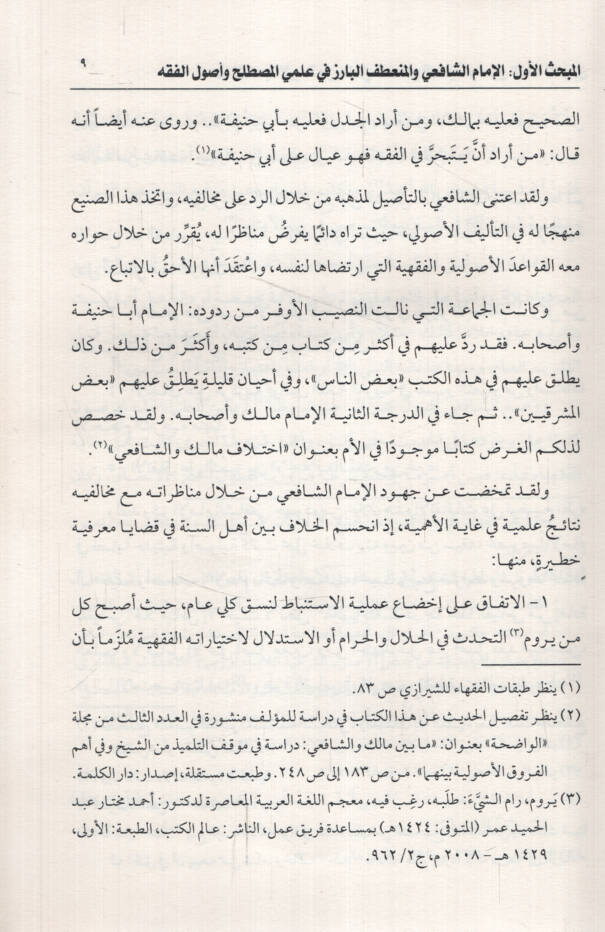 المبحث الأول: الإمام الشافعي والمنعطف البارز في علمي المصطلح وأصول الفقه ٩
الصحيح فعليه بمالك، ومن أراد الجدل فعليه بأبي حنيفة».. وروى عنه أيضاً أنه
قال: «من أراد أنَّ يَتَبحرَّ في الفقه فهو عيال على أبي حنيفة»(١).
ولقد اعتنى الشافعي بالتأصيل لمذهبه من خلال الرد على مخالفيه، واتخذ هذا الصنيع
منهجًا له في التأليف الأصولي، حيث تراه دائمًا يفرضُ مناظرًا له، يُقرِّر من خلال حواره
معه القواعدَ الأصولية والفقهية التي ارتضاها لنفسه، واعْتقَدَ أنها الأحقُّ بالاتباع.
وكانت الجماعة التي نالت النصيب الأوفر من ردوده: الإمام أبا حنيفة
وأصحابه. فقد ردَّ عليهم في أكثر مِن كتاب مِن كتبه، وأَكثَرَ من ذلك. وكان
يطلق عليهم في هذه الكتب «بعض الناس»، وفي أحيان قليلةٍ يَطلِقُ عليهم «بعض
المشرقيين».. ثم جاء في الدرجة الثانية الإمام مالك وأصحابه. ولقد خصص
لذلكم الغرض كتابًا موجودًا في الأم بعنوان «اختلاف مالك والشافعي»(٢).
ولقد تمخضت عن جهود الإمام الشافعي من خلال مناظراته مع مخالفيه
نتائجُ علمية في غاية الأهمية، إذ انحسم الخلاف بين أهل السنة في قضايا معرفية
خطيرةٍ، منها:
١- الاتفاق على إخضاع عملية الاستنباط لنسق كلي عام، حيث أصبح كل
من يروم(٣) التحدث في الحلال والحرام أو الاستدلال لاختياراته الفقهية مُلزَماً بأن
(١) ينظر طبقات الفقهاء للشيرازي ص ٨٣.
(٢) ينظر تفصيل الحديث عن هذا الكتاب في دراسة للمؤلف منشورة في العدد الثالث من مجلة
«الواضحة» بعنوان: «ما بين مالك والشافعي: دراسة في موقف التلميذ من الشيخ وفي أهم
الفروق الأصولية بينهما». من ص ١٨٣ إلى ص ٢٤٨. وطبعت مستقلة، إصدار: دار الكلمة.
(٣) يَروم، رام الشيَّءَ: طلَبه، رغِب فيه، معجم اللغة العربية المعاصرة لدكتور: أحمد مختار عبد
الحميد عمر (المتوفى: ١٤٢٤هـ) بمساعدة فريق عمل، الناشر: عالم الكتب، الطبعة: الأولى،
١٤٢٩ هـ – ٢٠٠٨ م، ج٢/ ٩٦٢.